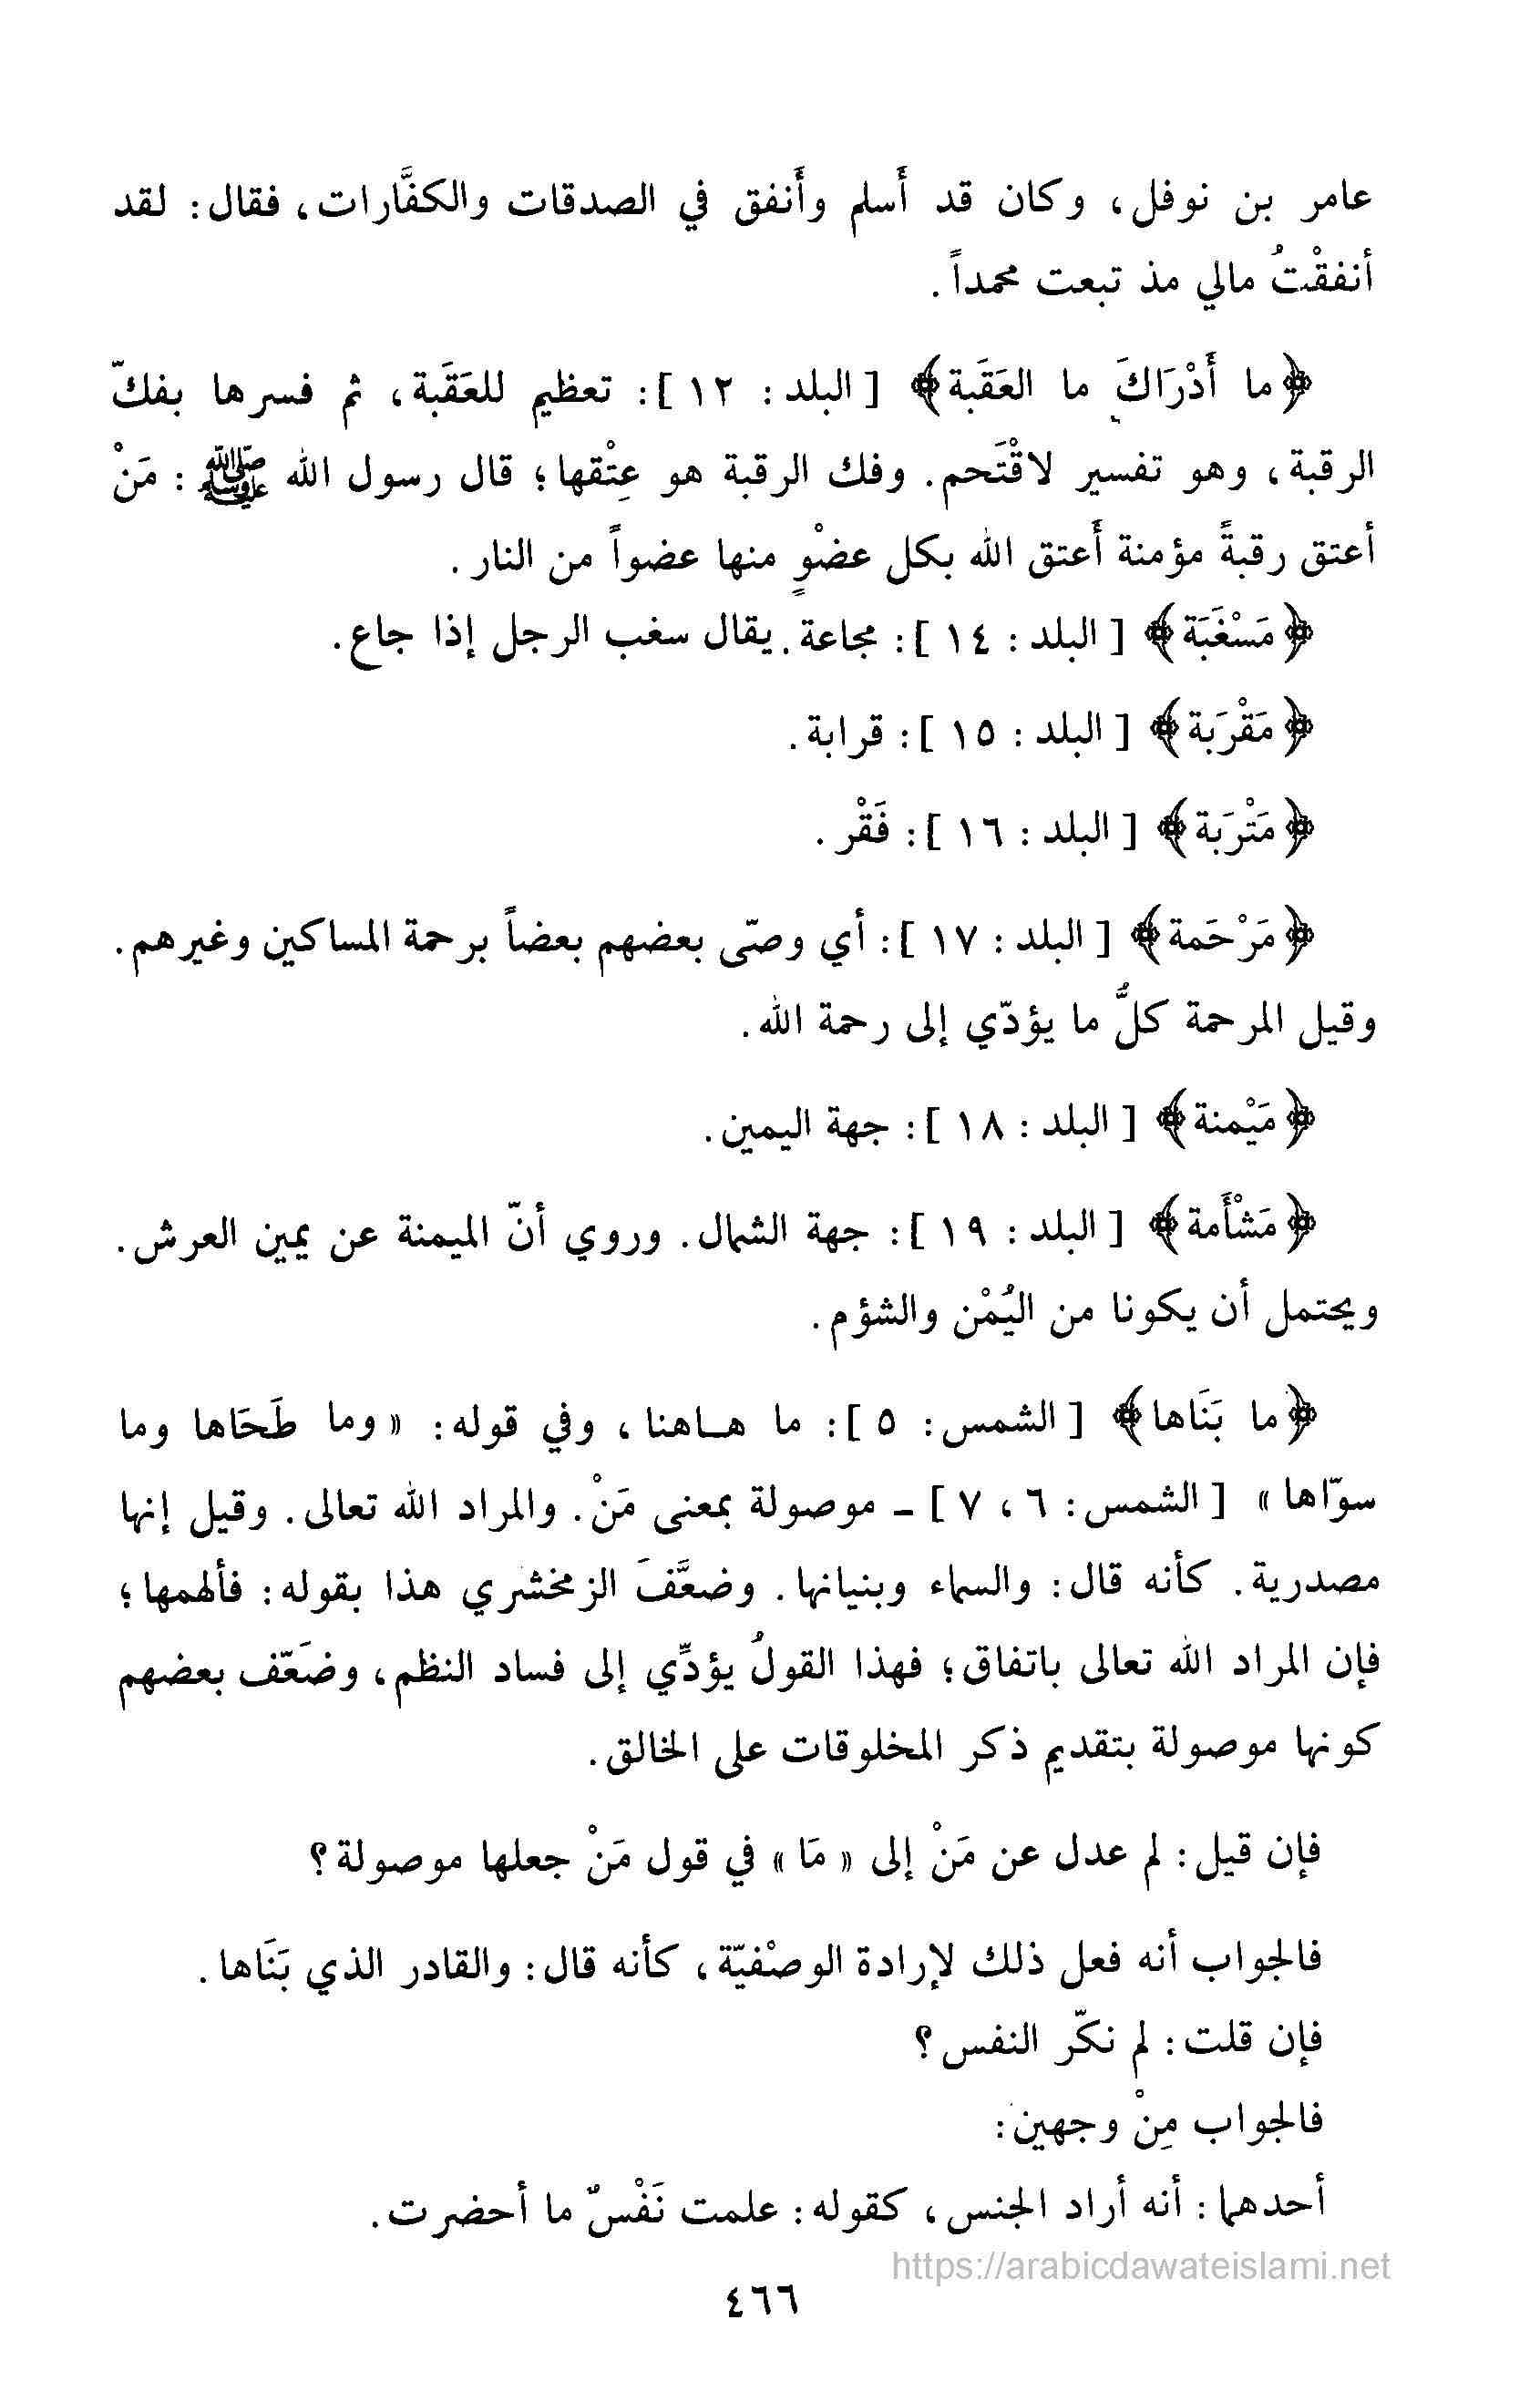 عامر بن نوفل، وكان قد أَسلم وأَنفق في الصدقات والكفَّارات، فقال: لقد
أنفقْتُ مالي مذ تبعت محمداً.
﴿ما أَدْرَاكَ ما العَقَبة﴾ [البلد: ١٢]: تعظيم للعَقَبة، ثم فسرها بفكّ
الرقبة، وهو تفسير لاقْتَحم. وفك الرقبة هو عِتْقها؛ قال رسول الله ﷺ: مَنْ
أعتق رقبةً مؤمنة أَعتق الله بكل عضْوٍ منها عضواً من النار.
﴿مَسْغَبَة﴾ [البلد: ١٤]: مجاعة. يقال سغب الرجل إذا جاع.
﴿مَقْرَبة﴾ [البلد: ١٥]: قرابة.
﴿مَتْرَبة﴾ [البلد: ١٦]: فَقْر.
﴿مَرْحَمة﴾ [البلد: ١٧]: أي وصّى بعضهم بعضاً برحمة المساكين وغيرهم.
وقيل المرحمة كلُّ ما يؤدّي إلى رحمة الله.
﴿مَيْمنة﴾ [البلد: ١٨]: جهة اليمين.
﴿مَشْأَمة﴾ [البلد: ١٩]: جهة الشمال. وروي أنّ الميمنة عن يمين العرش.
ويحتمل أن يكونا من اليُمْن والشؤم.
﴿ما بَنَاها﴾ [الشمس: ٥]: ما هـاهنا، وفي قوله: «وما طَحَاها وما
سوّاها» [الشمس: ٦، ٧] - موصولة بمعنى مَنْ. والمراد الله تعالى. وقيل إنها
مصدرية. كأنه قال: والسماء وبنيانها. وضعَّفَ الزمخشري هذا بقوله: فألهمها؛
فإن المراد الله تعالى باتفاق؛ فهذا القولُ يؤدِّي إلى فساد النظم، وضَعّف بعضهم
كونها موصولة بتقديم ذكر المخلوقات على الخالق.
فإن قيل: لم عدل عن مَنْ إلى «مَا» في قول مَنْ جعلها موصولة؟
فالجواب أنه فعل ذلك لإرادة الوصْفيّة، كأنه قال: والقادر الذي بَنَاها.
فإن قلت: لم نكّر النفس؟
فالجواب مِنْ وجهين:
أحدهما: أنه أراد الجنس، كقوله: علمت نَفْسٌ ما أحضرت.
https://arabicdawateislami.net
٤٦٦